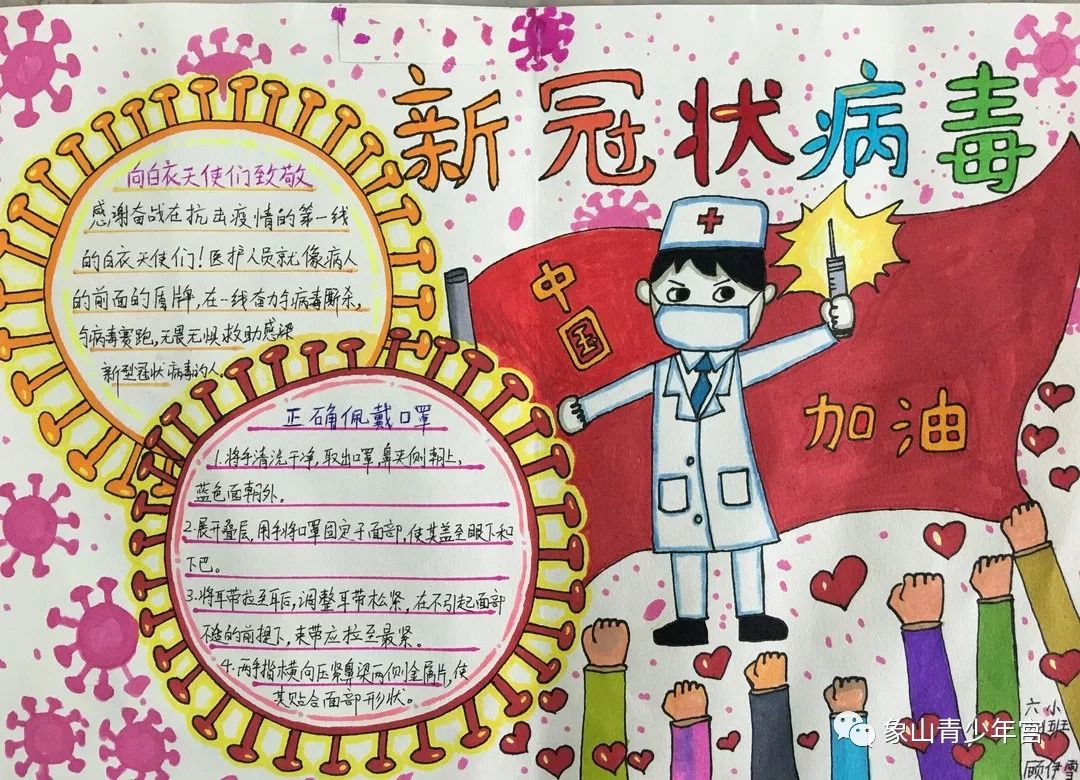 新冠状病毒
向白衣天使们致敬
感谢奋战在抗击疫情的第一线
的白衣天使们！医护人员就像病人
的前面的盾牌，在一线奋力与病毒厮杀，
与病毒赛跑，无畏无惧救助感染
新型冠状病毒的人。
正确佩戴口罩
1.将手清洗干净，取出口罩，鼻夹侧朝上，
蓝色面朝外。
2.展开叠层，用手将口罩固定于面部，使其盖至眼下和
下巴。
3.将耳带拉至耳后，调整耳带松紧，在不引起面部
不适的前提下，束带应拉至最紧。
4.两手指横向压紧鼻梁两侧金属片，使
其贴合面部形状。
中国
加油
六小
班
象山青少年宫